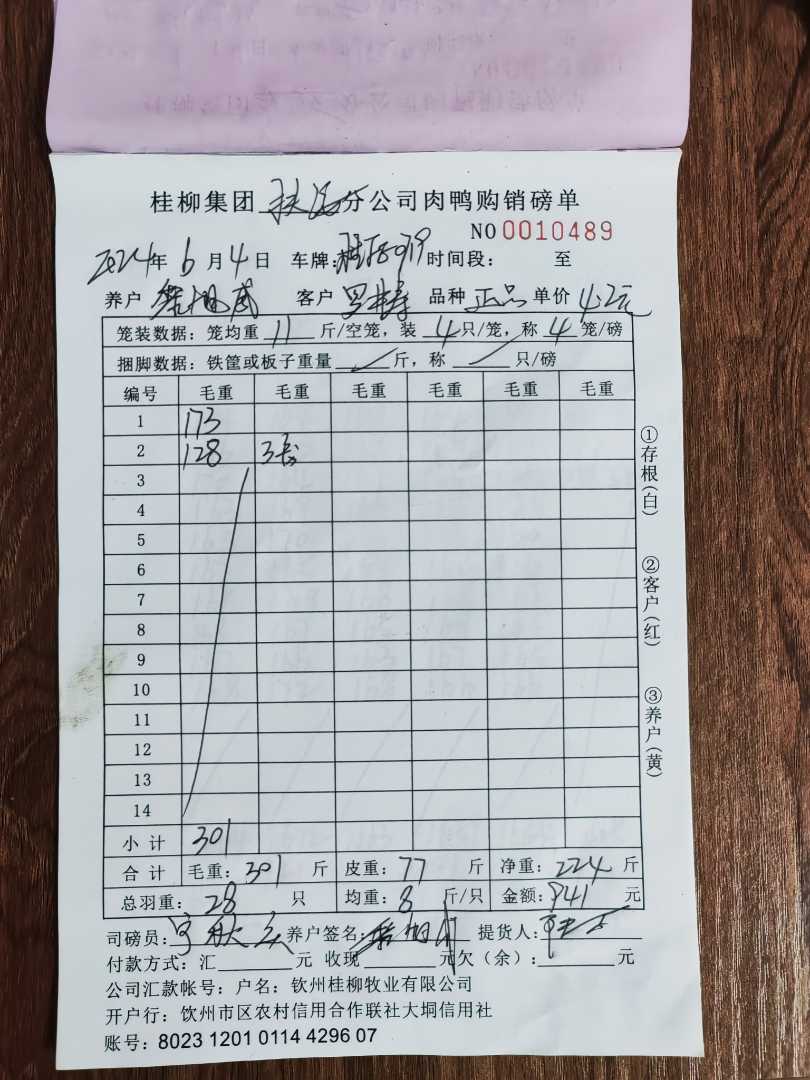 桂柳集团 分公司肉鸭购销磅单
NO 0010489
2024年 6 月 4 日 车牌: 时间段: 至
养户 客户 罗 品种 正品 单价 4.2元
笼装数据：笼均重 11 斤/空笼，装 4 只/笼，称 4 笼/磅
捆脚数据：铁筐或板子重量 斤，称 只/磅
编号 毛重 毛重 毛重 毛重 毛重 毛重
1 173
2 128 3
3
4
5
6
7
8
9
10
11
12
13
14
小计 301
合计 毛重：301 斤 皮重：77 斤 净重：224 斤
总羽重：28 只 均重：8 斤/只 金额：941 元
司磅员： 养户签名： 提货人：
付款方式：汇 元 收现 元欠（余）： 元
公司汇款帐号：户名：钦州桂柳牧业有限公司
开户行：钦州市区农村信用合作联社大垌信用社
账号：8023 1201 0114 4296 07
①存根(白)
②客户(红)
③养户(黄)